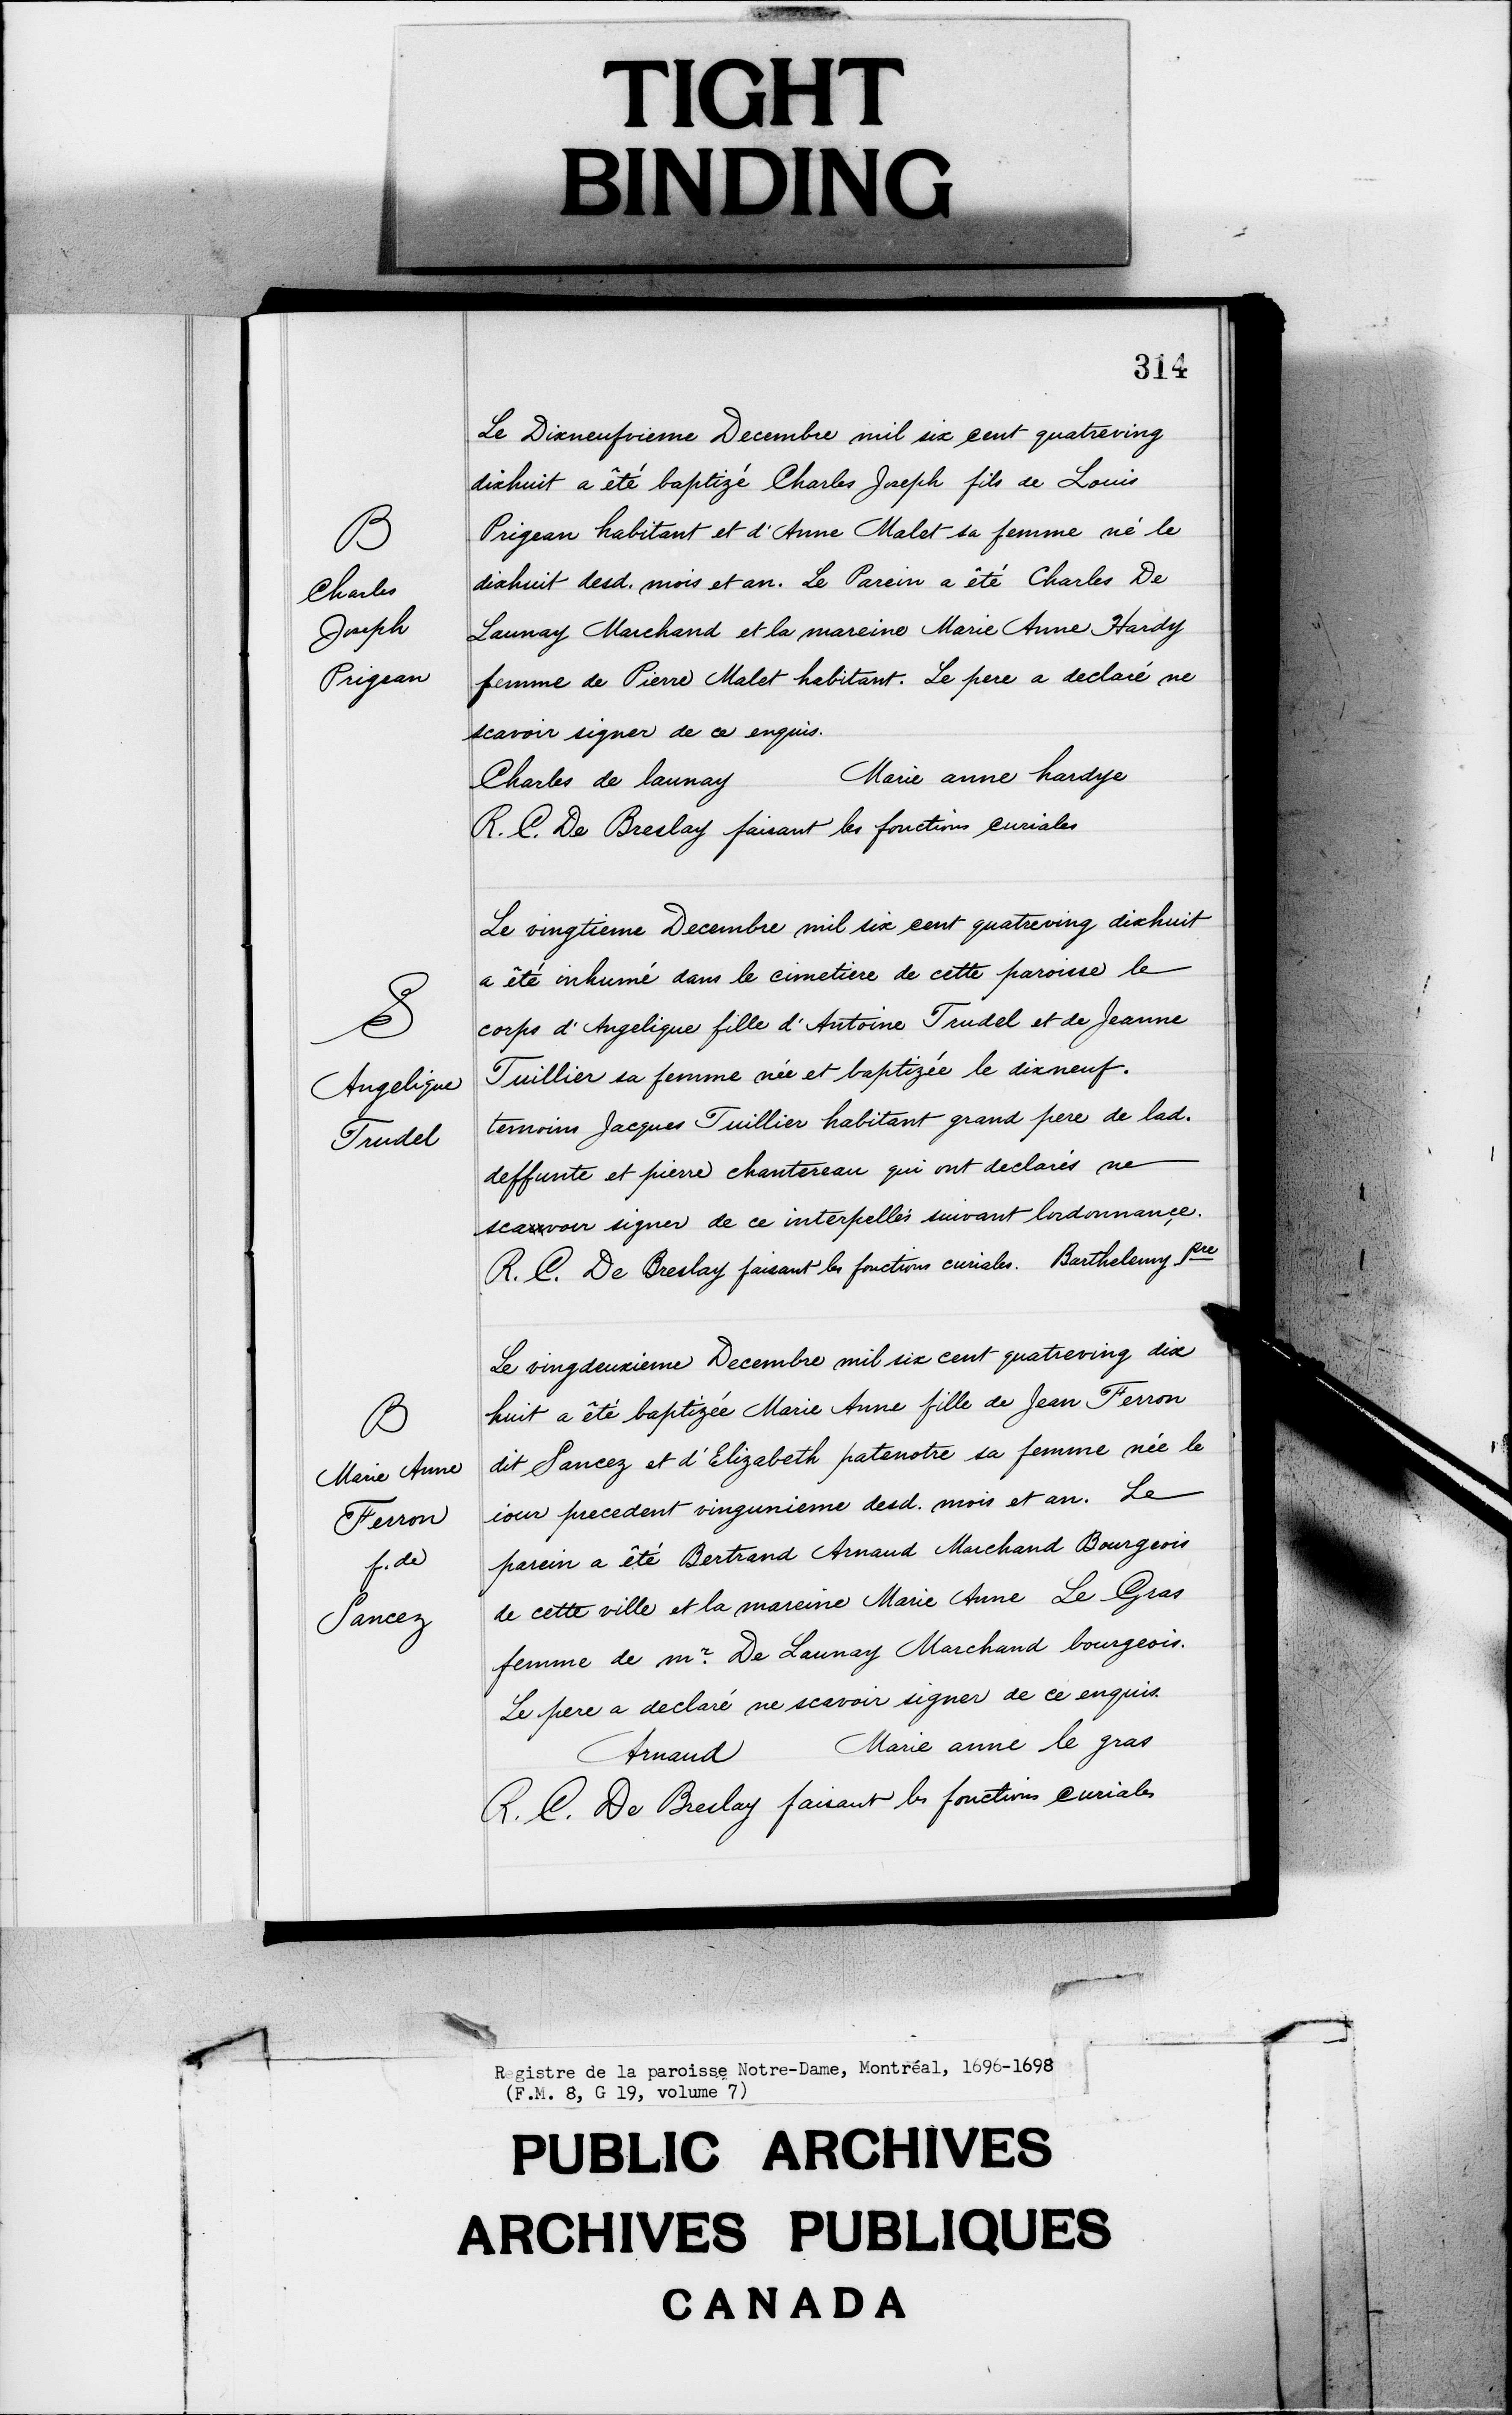 TIGHT
BINDING
314
Le Dixneufvieme Decembre mil six cent quatreving
dixhuit a êté baptizé Charles Joseph fils de Louis
B
Prigean habitant et d'Anne Malet sa femme né le
Charles
dixhuit desd. mois et an. Le Parein a êté Charles De
Joseph
Launay Marchand et la mareine Marie Anne Hardy
Prigean
femme de Pierre Malet habitant. Le pere a declaré ne
scavoir signer de ce enquis.
Charles de launay Marie anne hardye
R. C. De Breslay faisant les fonctions curiales
Le vingtieme Decembre mil six cent quatreving dixhuit
a êté inhumé dans le cimetiere de cette paroisse le
S
corps d'Angelique fille d'Antoine Trudel et de Jeanne
Angelique
Tuillier sa femme née et baptizée le dixneuf.
Trudel
temoins Jacques Tuillier habitant grand pere de lad.
deffunte et pierre chantereau qui ont declarés ne
scaxxvoir signer de ce interpellés suivant lordonnance.
R. C. De Breslay faisant les fonctions curiales. Barthelemy pre
Le vingdeuxieme Decembre mil six cent quatreving dix
B
huit a êté baptizée Marie Anne fille de Jean Ferron
Marie Anne
dit Sancez et d'Elizabeth patenotre sa femme née le
Ferron
iour precedent vingunieme desd. mois et an. Le
f. de
parein a êté Bertrand Arnaud Marchand Bourgeois
Sancez
de cette ville et la mareine Marie Anne Le Gras
femme de mr. De Launay Marchand bourgeois.
Le pere a declaré ne scavoir signer de ce enquis.
Arnaud Marie anne le gras
R. C. De Breslay faisant les fonctions curiales
Registre de la paroisse Notre-Dame, Montréal, 1696-1698
(F.M. 8, G 19, volume 7)
PUBLIC ARCHIVES
ARCHIVES PUBLIQUES
CANADA